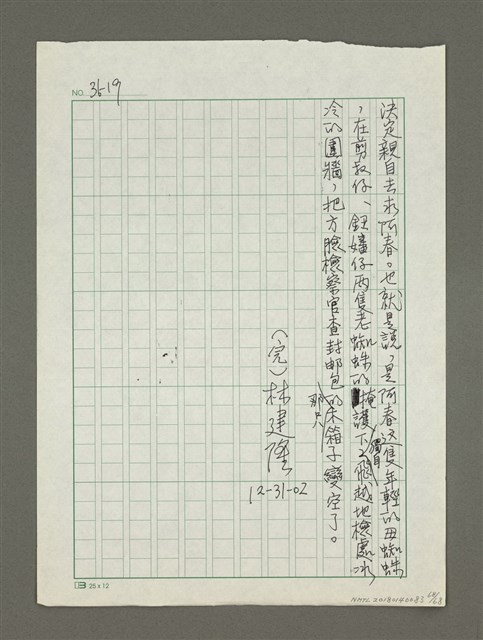 NO. 3619
決定親自去求阿春。也就是說，是阿春這隻年輕的母蜘蛛
，在剪叔仔、鉗嬸仔兩隻老蜘蛛的掩護下，獨自飛越地檢處冰
冷的圍牆，把方臉檢察官查封郵包的那只木箱子變空了。
（完）林建隆
12-31-02
25x12
NMTL20180142083 68/68